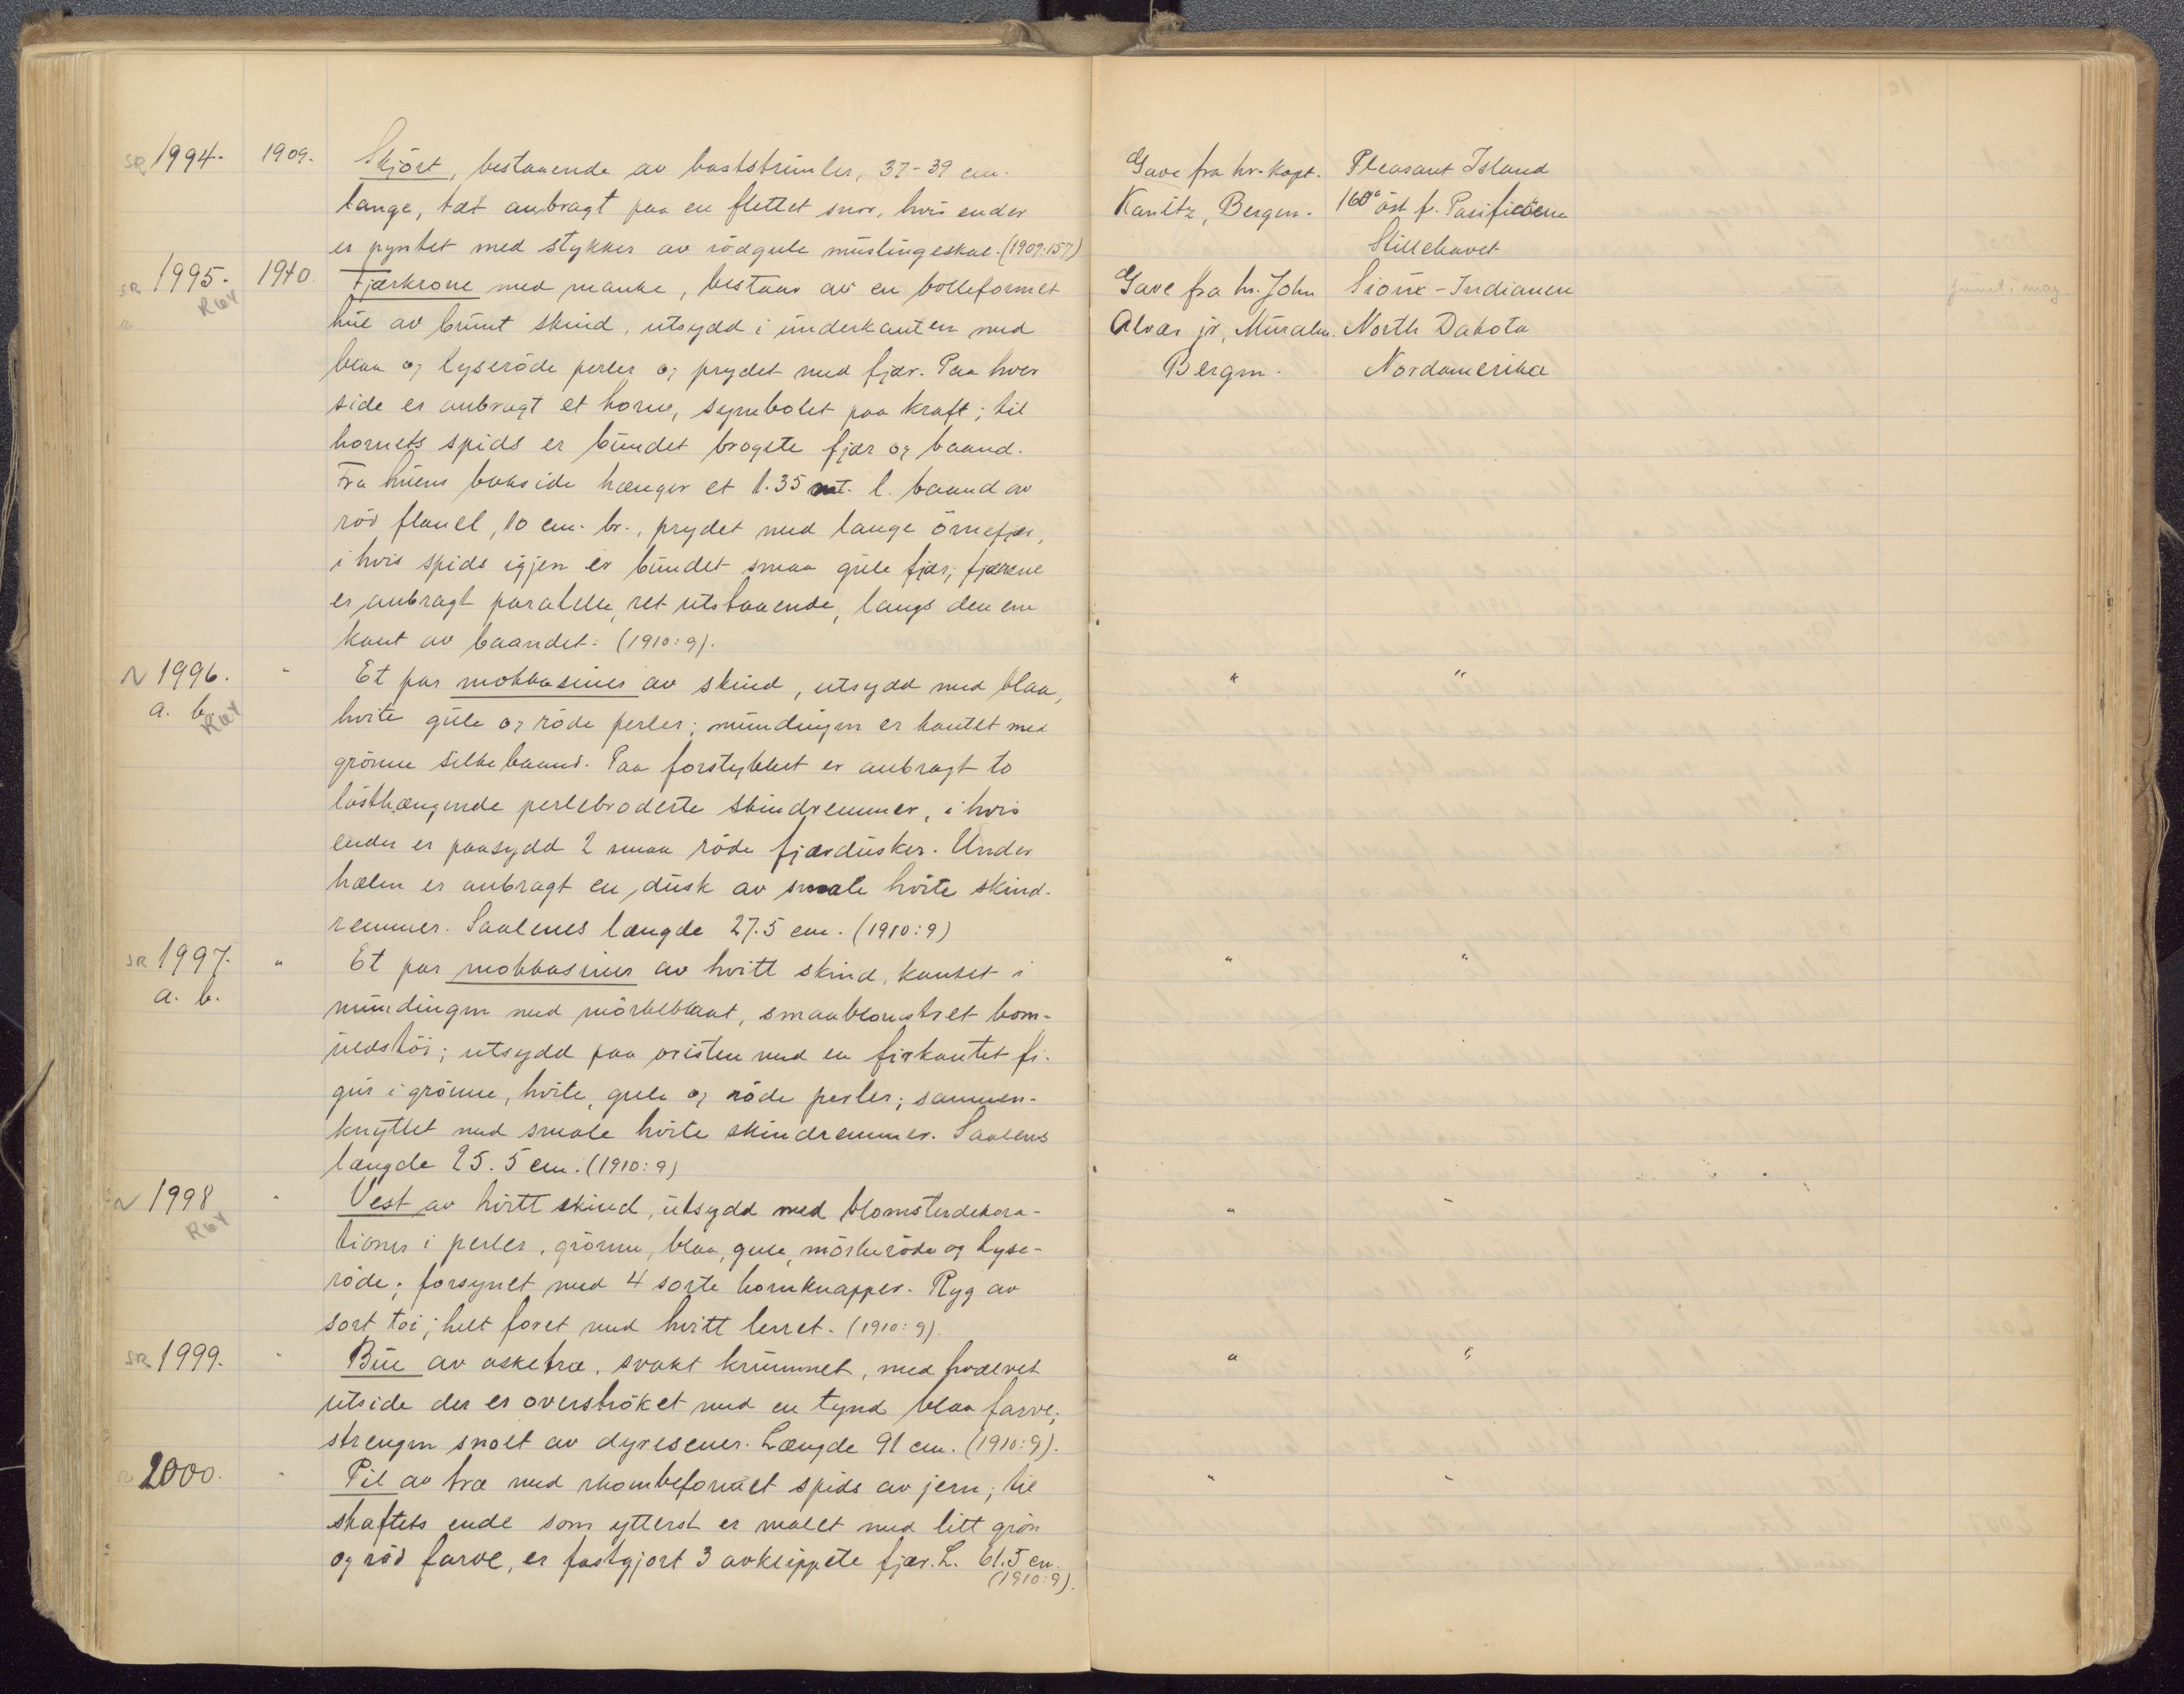 SR 1994. 1909. Skjört, bestaaende av baststrimler, 37-39 cm. Gave fra hr. Kapt. Pleasant Island
lange, tæt anbragt paa en flettet snor, hvis ender Kanitz, Bergen. 160° öst f. Pasificöerne
er pyntet med stykker av rödgule muslingeskal. (1909:157) Stillehavet
SR 1995. 1910. Fjærkrone med manke, bestaar av en bolleformet Gave fra hr. John Sioux-Indianern
R64 hue av brunt skind, utsydd i underkanten med Alvær jr, Muralm. North Dakota
blaa og lyseröde perler og prydet med fjær. Paa hver Bergen. Nordamerika
side er anbragt et horn, symbolet paa kraft; til
hornets spids er bundet brogete fjær og baand.
Fra huens bakside hænger et 1.35 mt. l. baand av
röd flanel, 10 cm. br., prydet med lange örnefjær,
i hvis spids igjen er bundet smaa gule fjær; fjærene
er anbragt paralelle, ret utstaaende, langs den ene
kant av baandet. (1910:9).
N 1996. " Et par mokkasiner av skind, utsydd med blaa, " "
a. b. R64 hvite gule og röde perler; mundingen er kantet med
grönne silkebaand. Paa forstykket er anbragt to
lösthængende perlebroderte skindremmer, i hvis
ender er paasydd 2 smaa röde fjærdusker. Under
hælen er anbragt en dusk av smale hvite skind-
remmer. Saalenes længde 27.5 cm. (1910:9)
SR 1997. " Et par mokkasiner av hvitt skind, kantet i " "
a. b. mundingen med mörkeblaat, smaablomstret bom-
uldstöi; utsydd paa vristen med en firkantet fi-
gur i grönne, hvite, gule og röde perler; sammen-
knyttet med smale hvite skindremmer. Saalens
længde 25.5 cm. (1910:9)
N 1998 " Vest av hvitt skind, utsydd med blomsterdekora- " "
R64 tioner i perler, grönne, blaa, gule, mörkeröde og lyse-
röde; forsynet med 4 sorte hornknapper. Ryg av
sort töi; helt foret med hvitt lerret. (1910:9).
SR 1999. " Bue av asketræ, svakt krummet, med hvælvet " "
utside der er overströket med en tynd blaa farve;
strengen snoet av dyresener. Længde 91 cm. (1910:9).
2000. " Pil av træ med rhombeformet spids av jern; til " "
skaftets ende som ytterst er malet med litt grön
og röd farve, er fastgjort 3 avklippete fjær. L. 61.5 cm.
(1910:9).